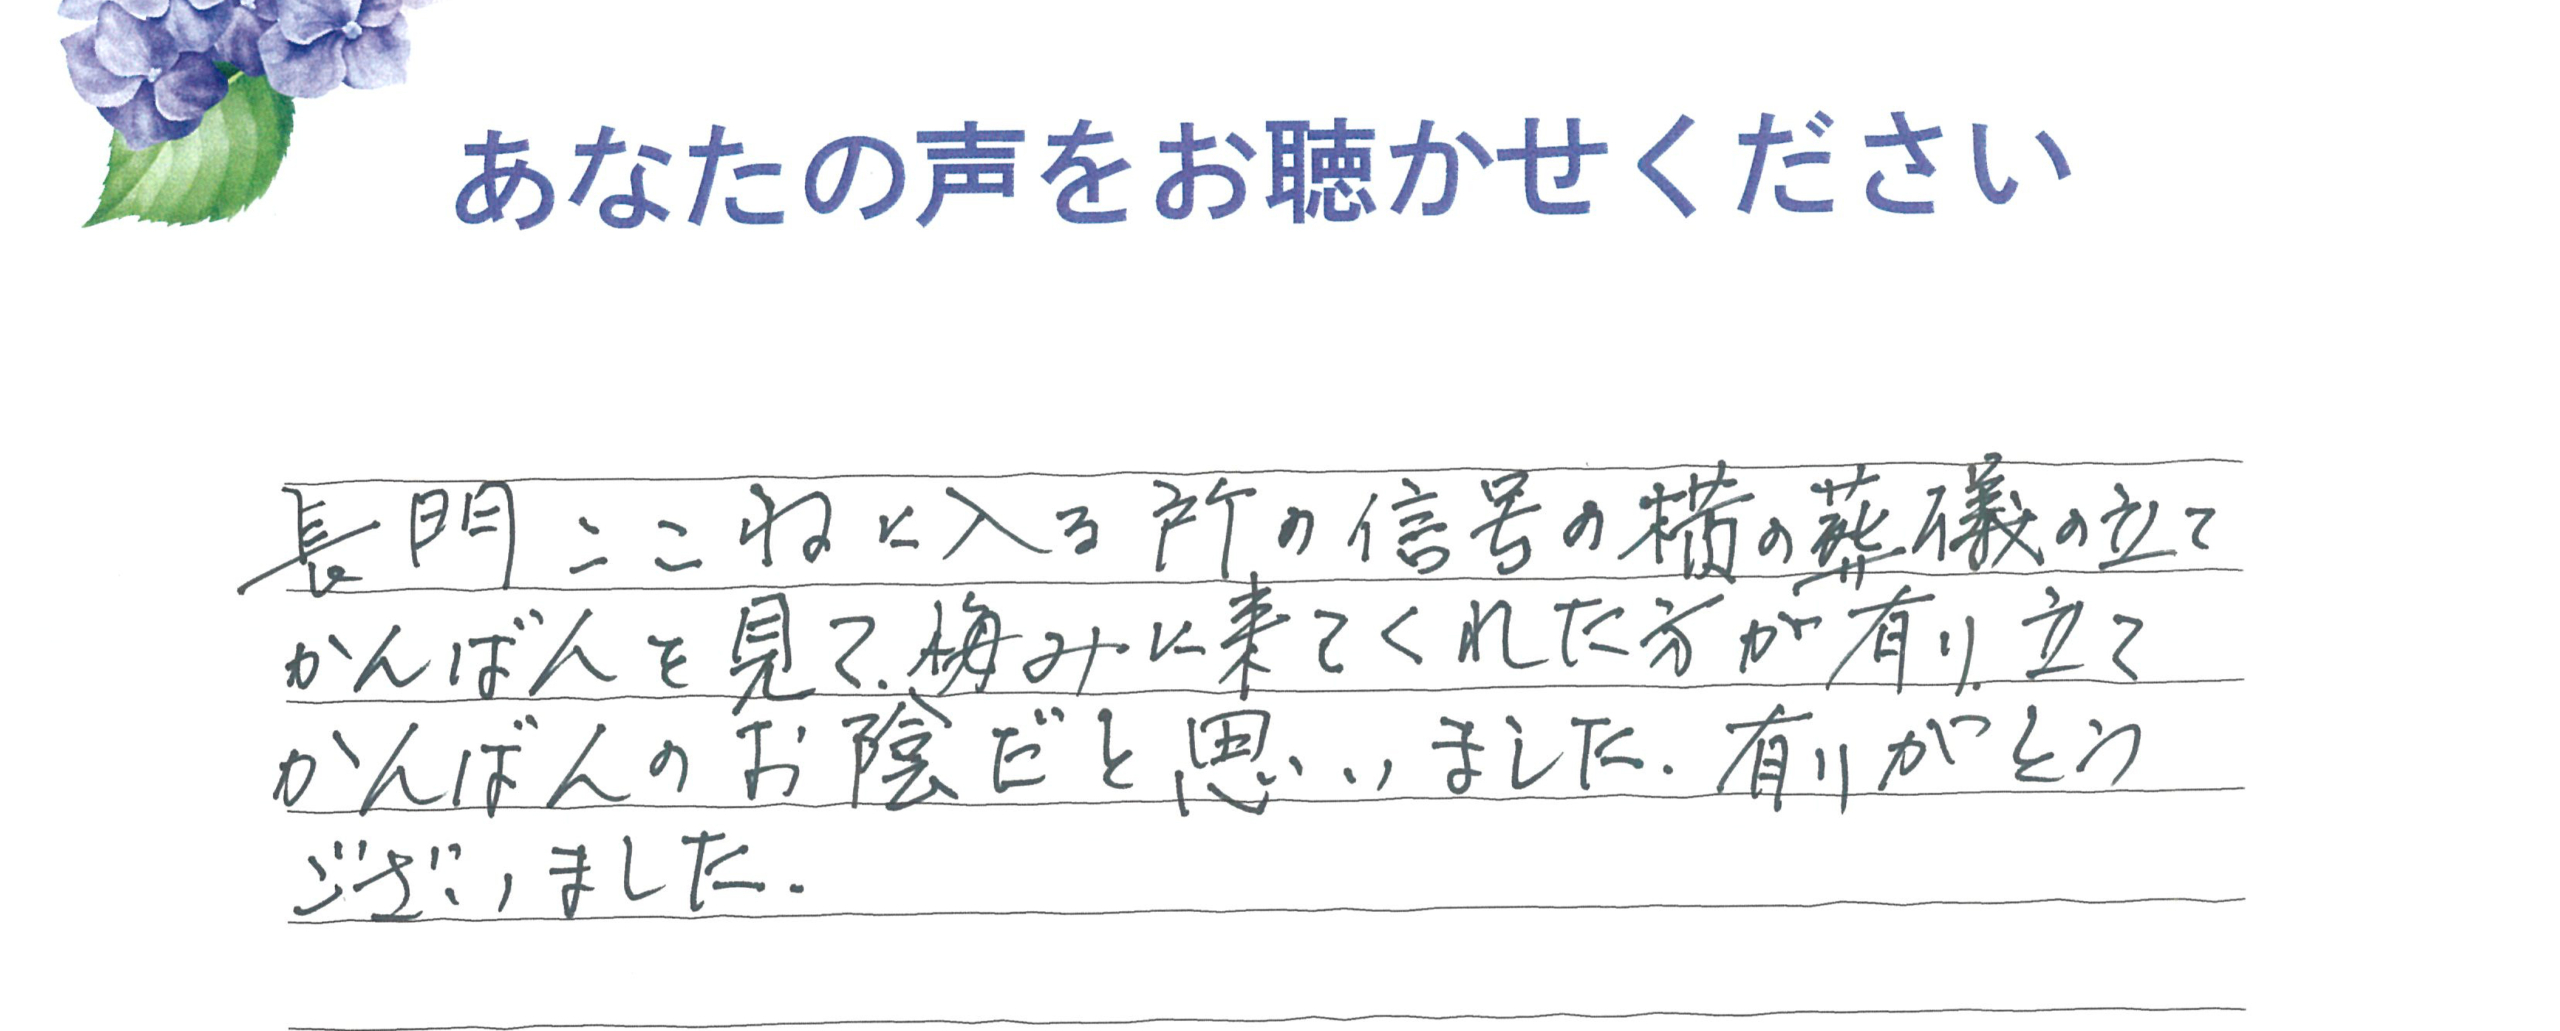 あなたの声をお聴かせください
長門ここねに入る所の信号の横の葬儀の立て
かんばんを見て、悔みに来てくれた方が有り、立て
かんばんのお陰だと思いいました。有りがとう
ございました。